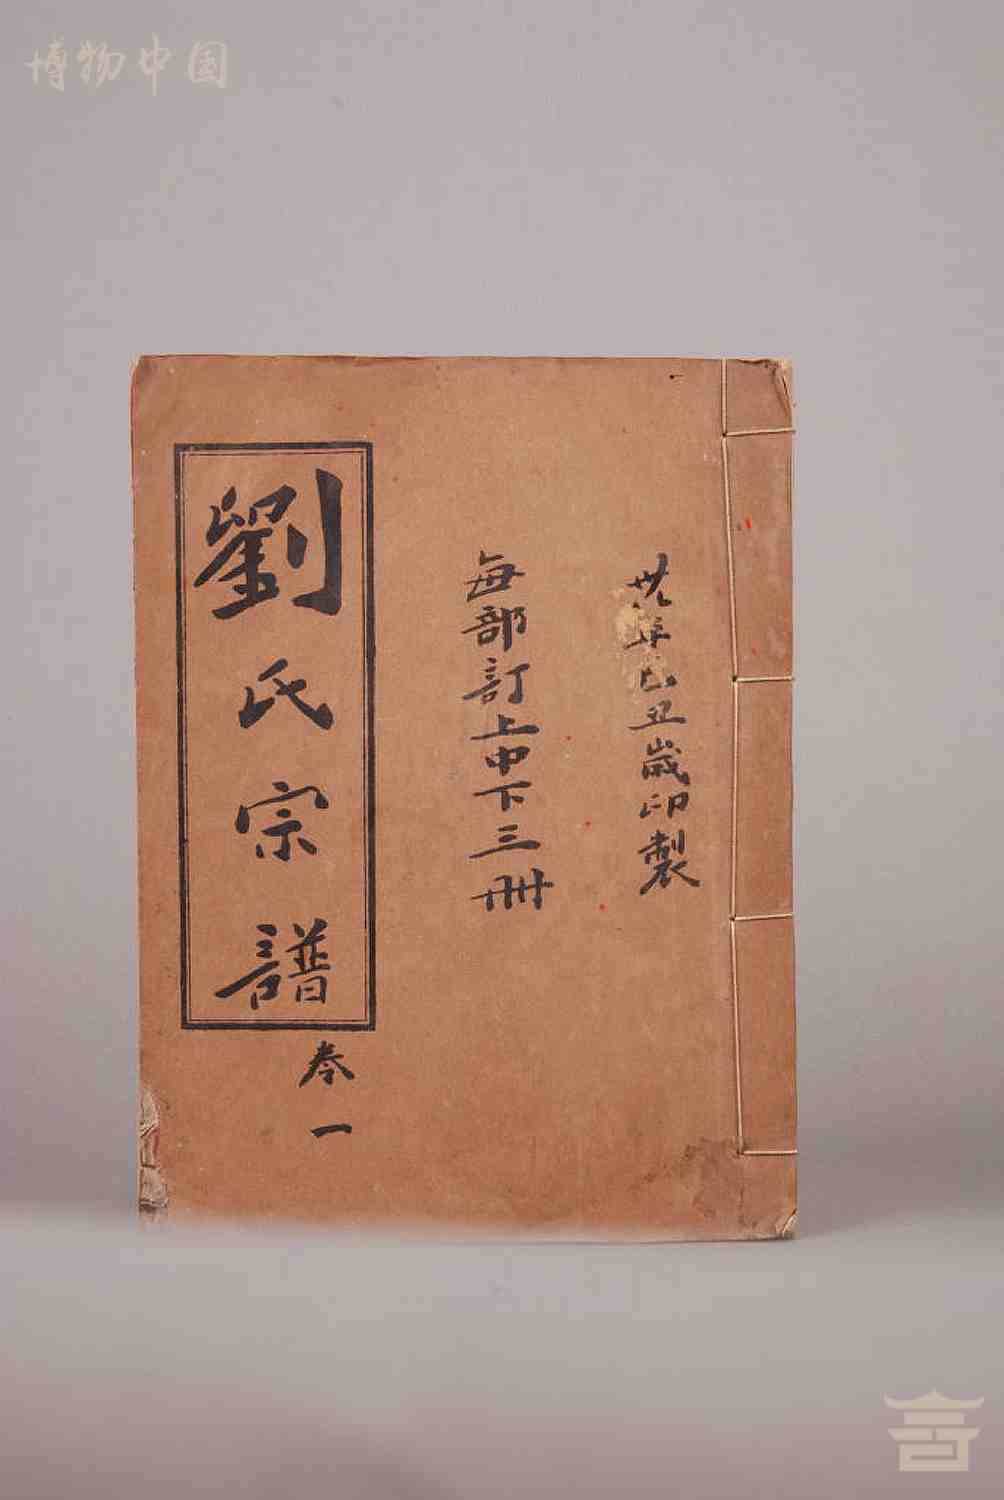 博物中国
卅八年己丑歲印製
每部訂上中下三冊
劉氏宗譜
卷一